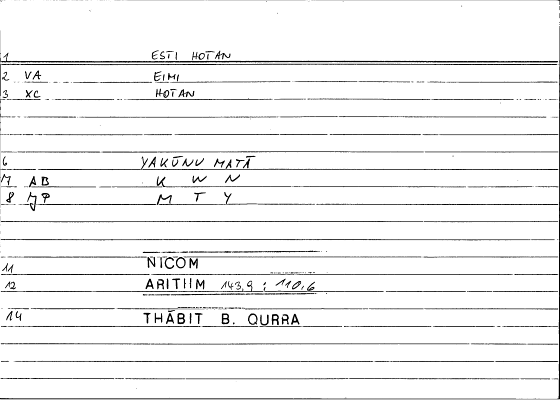 1 ESTI HOTAN
2 VA EIMI
3 XC HOTAN
6 YAKŪNU MATĀ
7 AB K W N
8 JP M T Y
11 NICOM
12 ARITHM 143,9 : 110,6
14 THĀBIT B. QURRA